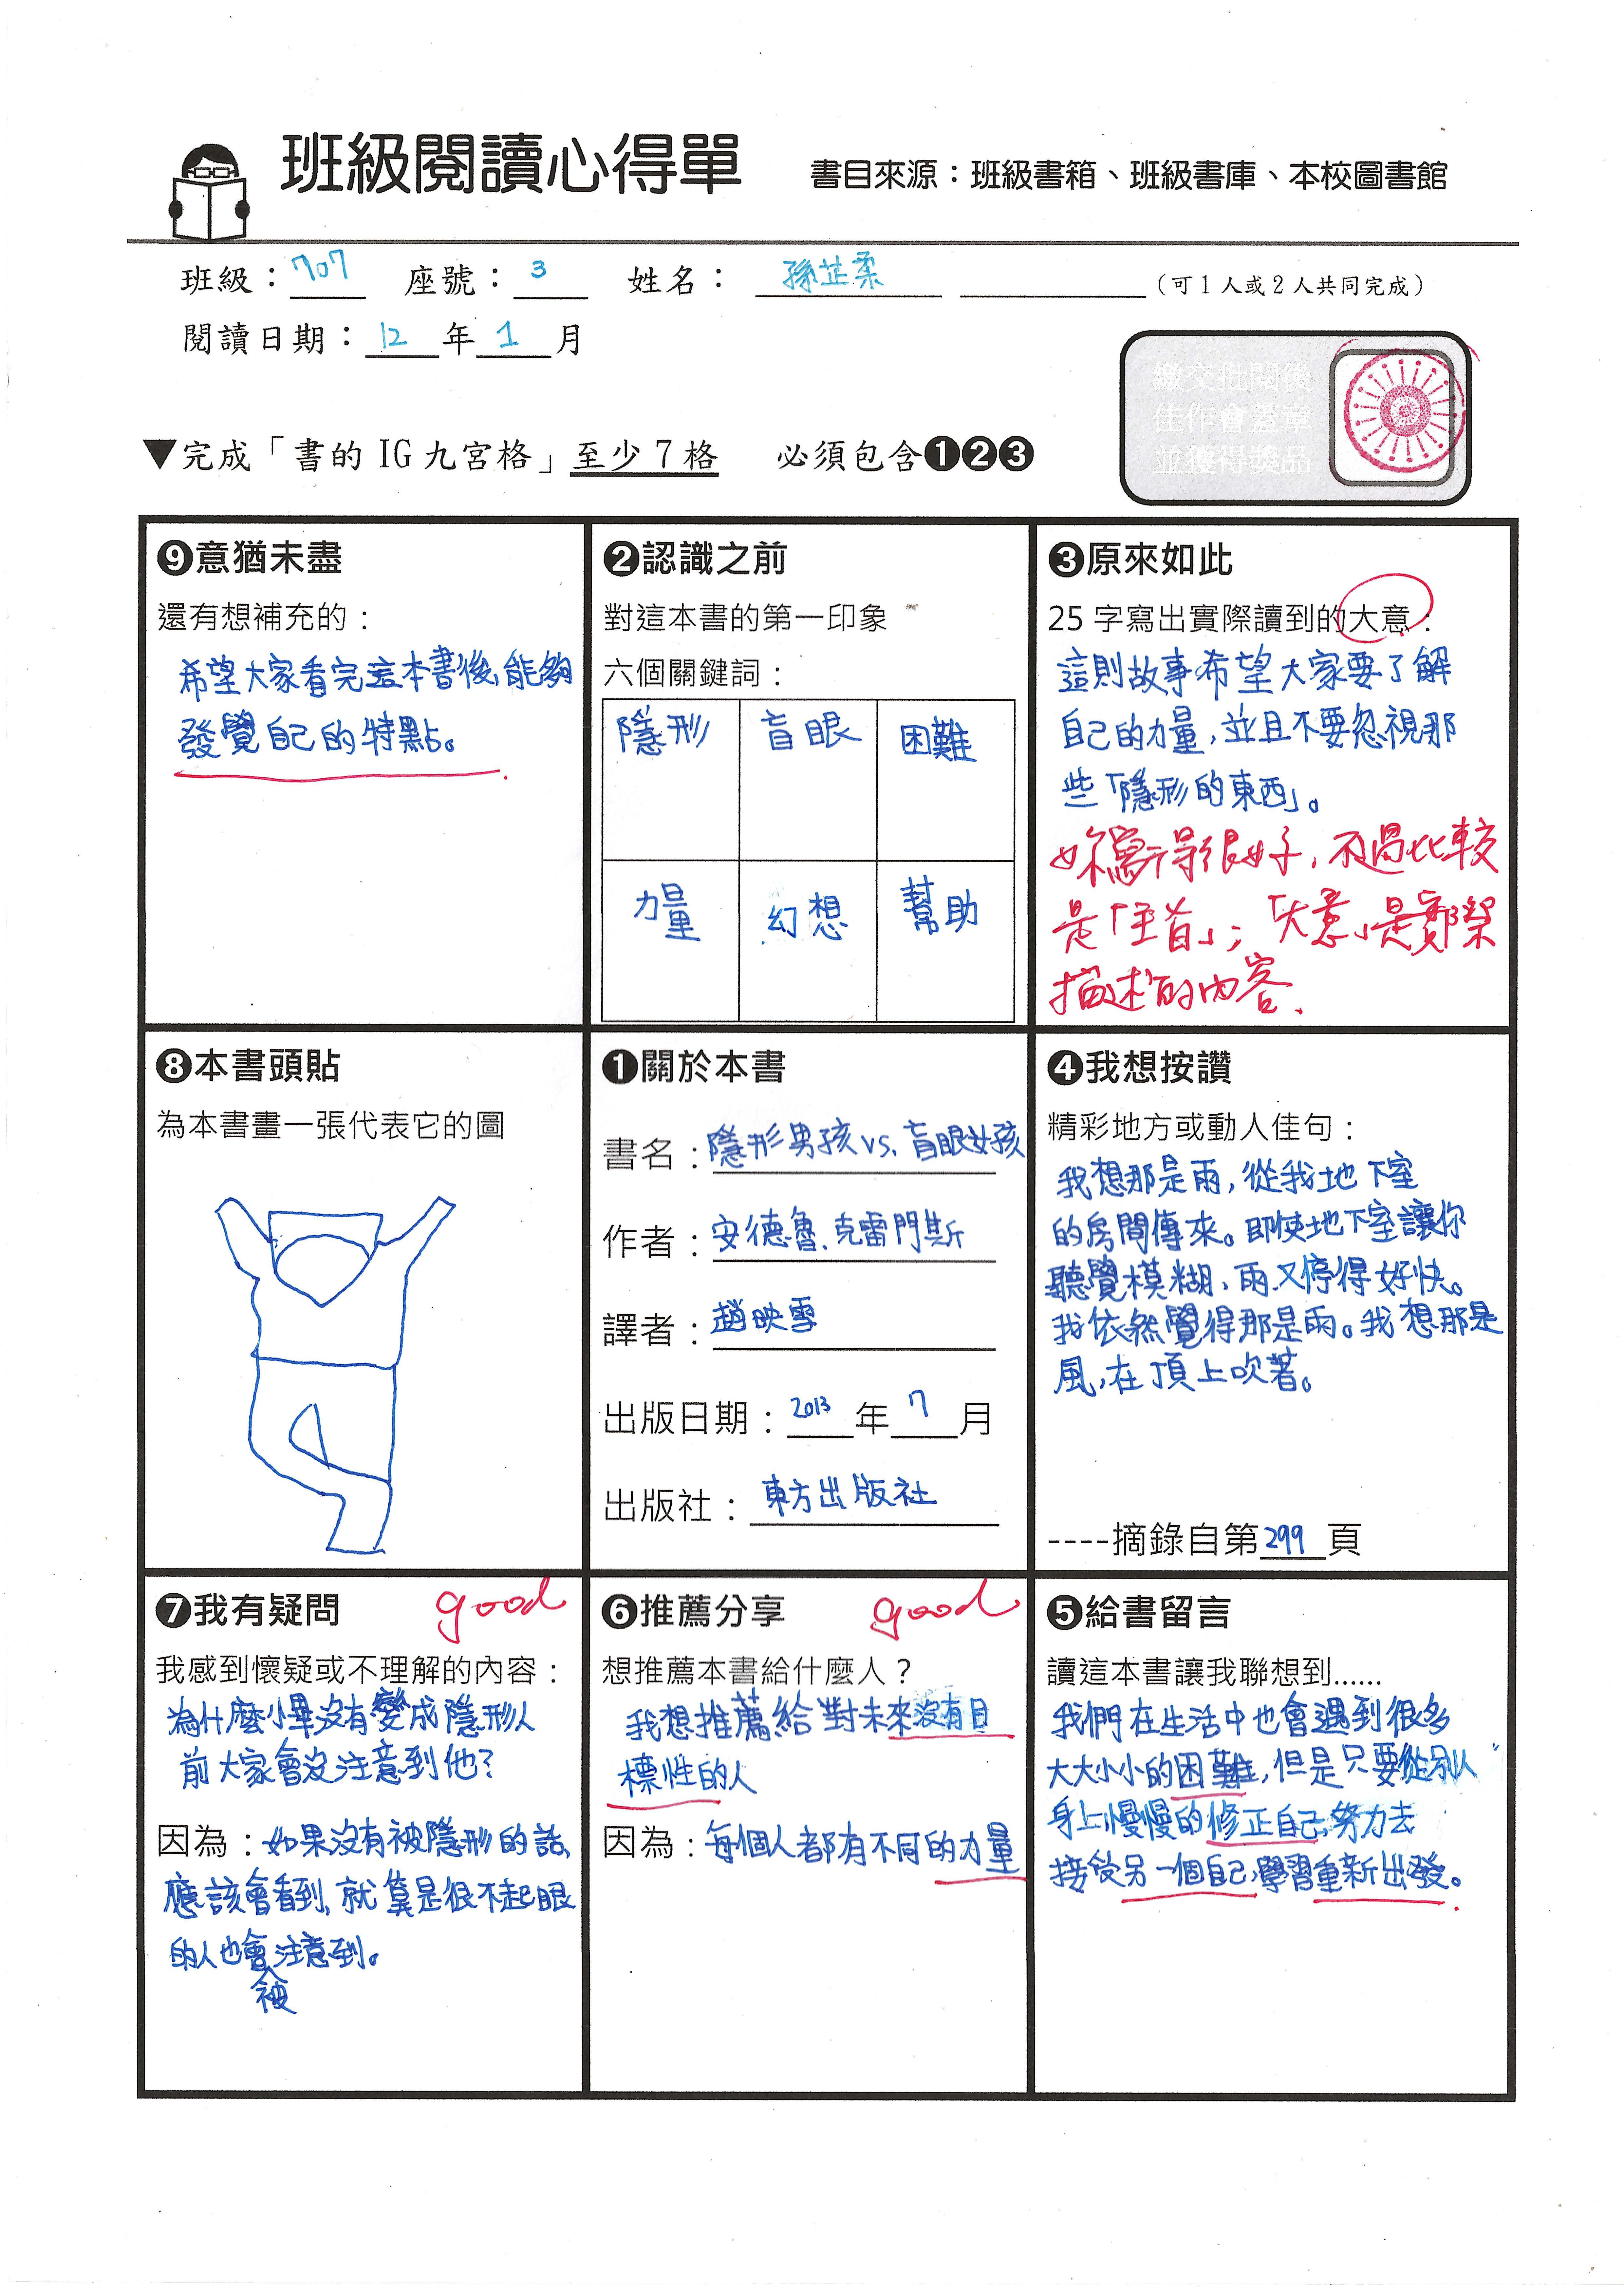 班級閱讀心得單
書目來源：班級書箱、班級書庫、本校圖書館
班級：707 座號：3 姓名：孫芷柔 （可1人或2人共同完成）
閱讀日期：12年1月
繳交批閱後
佳作會蓋章
並獲得獎品
▼完成「書的 IG 九宮格」至少7格 必須包含❶❷❸
❾意猶未盡
還有想補充的：
希望大家看完這本書後,能夠
發覺自己的特點。
❷認識之前
對這本書的第一印象
六個關鍵詞：
隱形 盲眼 困難
力量 幻想 幫助
❸原來如此
25 字寫出實際讀到的大意：
這則故事希望大家要了解
自己的力量,並且不要忽視那
些「隱形的東西」。
妳寫得很好,不過比較
是「主旨」;「大意」是實際
描述的內容.
❽本書頭貼
為本書畫一張代表它的圖
❶關於本書
書名：隱形男孩vs.盲眼女孩
作者：安德魯、克雷門斯
譯者：趙映雪
出版日期：2013年7月
出版社：東方出版社
❹我想按讚
精彩地方或動人佳句：
我想那是雨,從我地下室
的房間傳來。即使地下室讓你
聽覺模糊、雨又停得好快。
我依然覺得那是雨。我想那是
風,在頂上吹著。
----摘錄自第299頁
❼我有疑問
good
我感到懷疑或不理解的內容：
為什麼小畢沒有變成隱形人
前大家會沒注意到他?
因為：如果沒有被隱形的話、
應該會看到,就算是很不起眼
的人也會被注意到。
❻推薦分享
good
想推薦本書給什麼人？
我想推薦給對未來沒有目
標性的人
因為：每個人都有不同的力量
❺給書留言
讀這本書讓我聯想到......
我們在生活中也會遇到很多
大大小小的困難,但是只要從別人
身上慢慢的修正自己,努力去
接受另一個自己,學習重新出發。